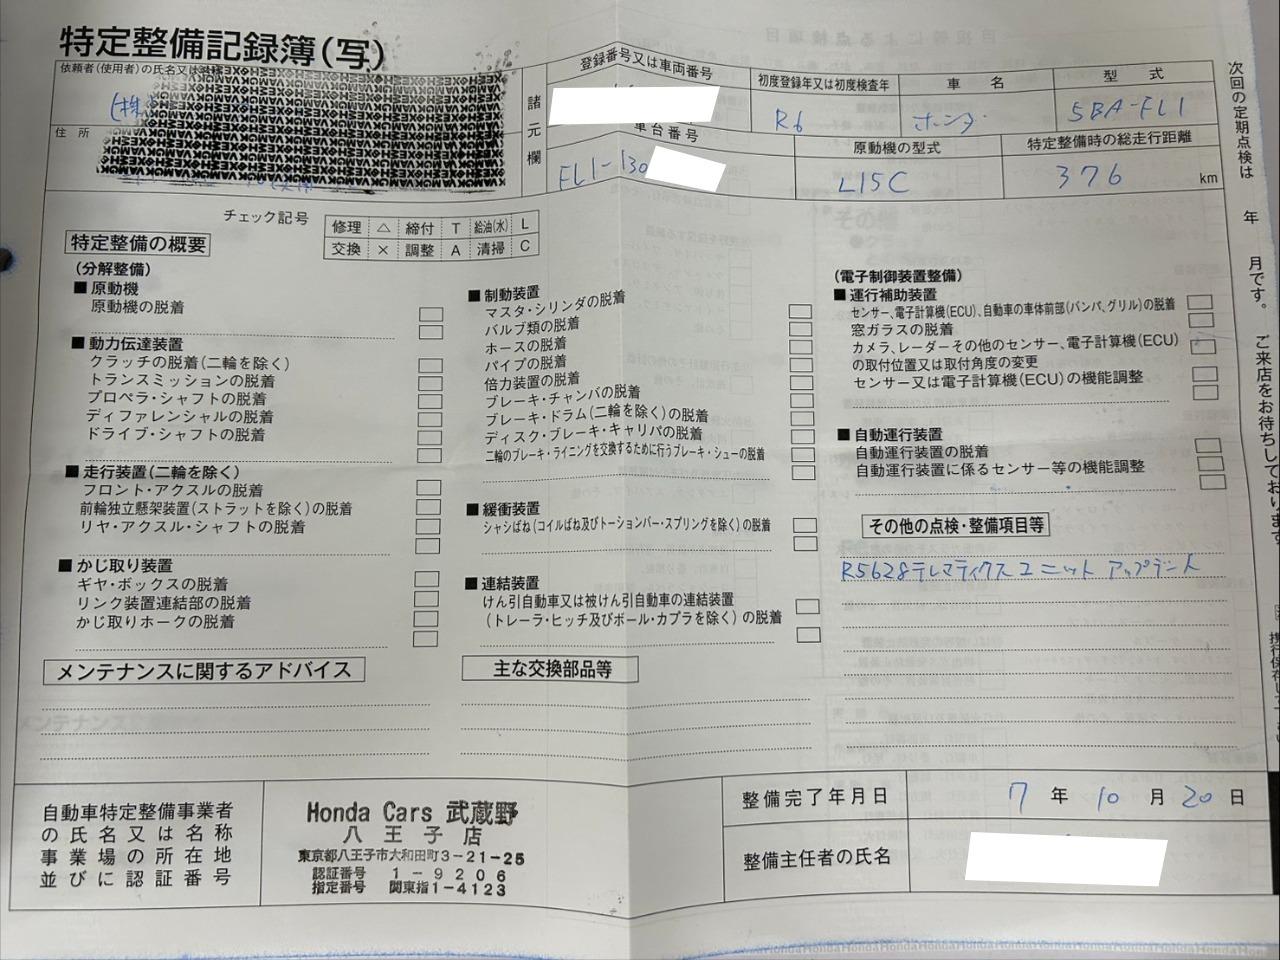 特定整備記録簿(写)
依頼者(使用者)の氏名又は
(株
住所
諸元欄
登録番号又は車両番号
初度登録年又は初度検査年
車名
型式
R6
ホンダ
5BA-FL1
車台番号
原動機の型式
特定整備時の総走行距離
FL1-130
L15C
376 km
チェック記号
修理 △ 締付 T 給油(水) L
交換 × 調整 A 清掃 C
特定整備の概要
(分解整備)
■ 原動機
原動機の脱着
■ 動力伝達装置
クラッチの脱着(二輪を除く)
トランスミッションの脱着
プロペラ・シャフトの脱着
ディファレンシャルの脱着
ドライブ・シャフトの脱着
■ 走行装置(二輪を除く)
フロント・アクスルの脱着
前輪独立懸架装置(ストラットを除く)の脱着
リヤ・アクスル・シャフトの脱着
■ かじ取り装置
ギヤ・ボックスの脱着
リンク装置連結部の脱着
かじ取りホークの脱着
■ 制動装置
マスタ・シリンダの脱着
バルブ類の脱着
ホースの脱着
パイプの脱着
倍力装置の脱着
ブレーキ・チャンバの脱着
ブレーキ・ドラム(二輪を除く)の脱着
ディスク・ブレーキ・キャリパの脱着
二輪のブレーキ・ライニングを交換するために行うブレーキ・シューの脱着
■ 緩衝装置
シャシばね(コイルばね及びトーションバー・スプリングを除く)の脱着
■ 連結装置
けん引自動車又は被けん引自動車の連結装置
(トレーラ・ヒッチ及びボール・カプラを除く)の脱着
(電子制御装置整備)
■ 運行補助装置
センサー、電子計算機(ECU)、自動車の車体前部(バンパ、グリル)の脱着
窓ガラスの脱着
カメラ、レーダーその他のセンサー、電子計算機(ECU)
の取付位置又は取付角度の変更
センサー又は電子計算機(ECU)の機能調整
■ 自動運行装置
自動運行装置の脱着
自動運行装置に係るセンサー等の機能調整
その他の点検・整備項目等
R5628テレマティクスユニット アップデート
メンテナンスに関するアドバイス
主な交換部品等
自動車特定整備事業者
の氏名又は名称
事業場の所在地
並びに認証番号
Honda Cars 武蔵野
八王子店
東京都八王子市大和田町3-21-25
認証番号 1-9206
指定番号 関東指1-4123
整備完了年月日
7年10月20日
整備主任者の氏名
次回の定期点検は 年 月です。ご来店をお待ちしております。